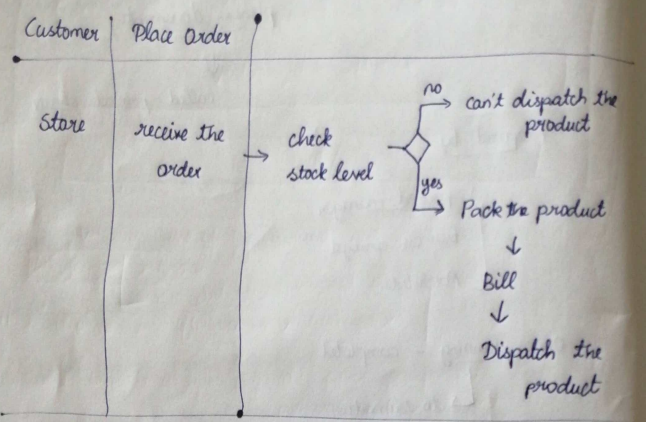 Customer
Place Order
Store
receive the
order
check
stock level
no
can't dispatch the
product
yes
Pack the product
Bill
Dispatch the
product